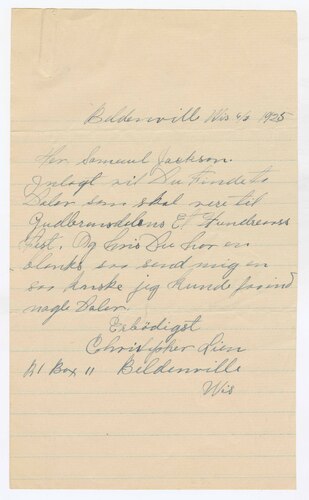 Beldenville Wis 4/6 1925
Her Samuel Jackson.
Inlagt vil Du Finde to
Daler som skal vere til
Gudbransdolens Et Hundreaars
Fest. Og hvis Du har en
blank, saa send mig en
saa kanske jeg kunde faa ind
nogle Daler.
Erbödigst
Christopher Lien
R1 Box 11 Beldenville
Wis